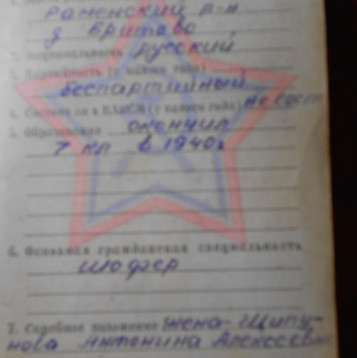 Раменский р-н
д Бритово
2. Национальность русский
3. Партийность (с какого года)
беспартийный
4. Состоял ли в ВЛКСМ (с какого года) не сост
5. Образование окончил
7 кл в 1940г
6. Основная гражданская специальность
шофер
7. Семейное положение жена - Щипу-
нова Антонина Алексеевна